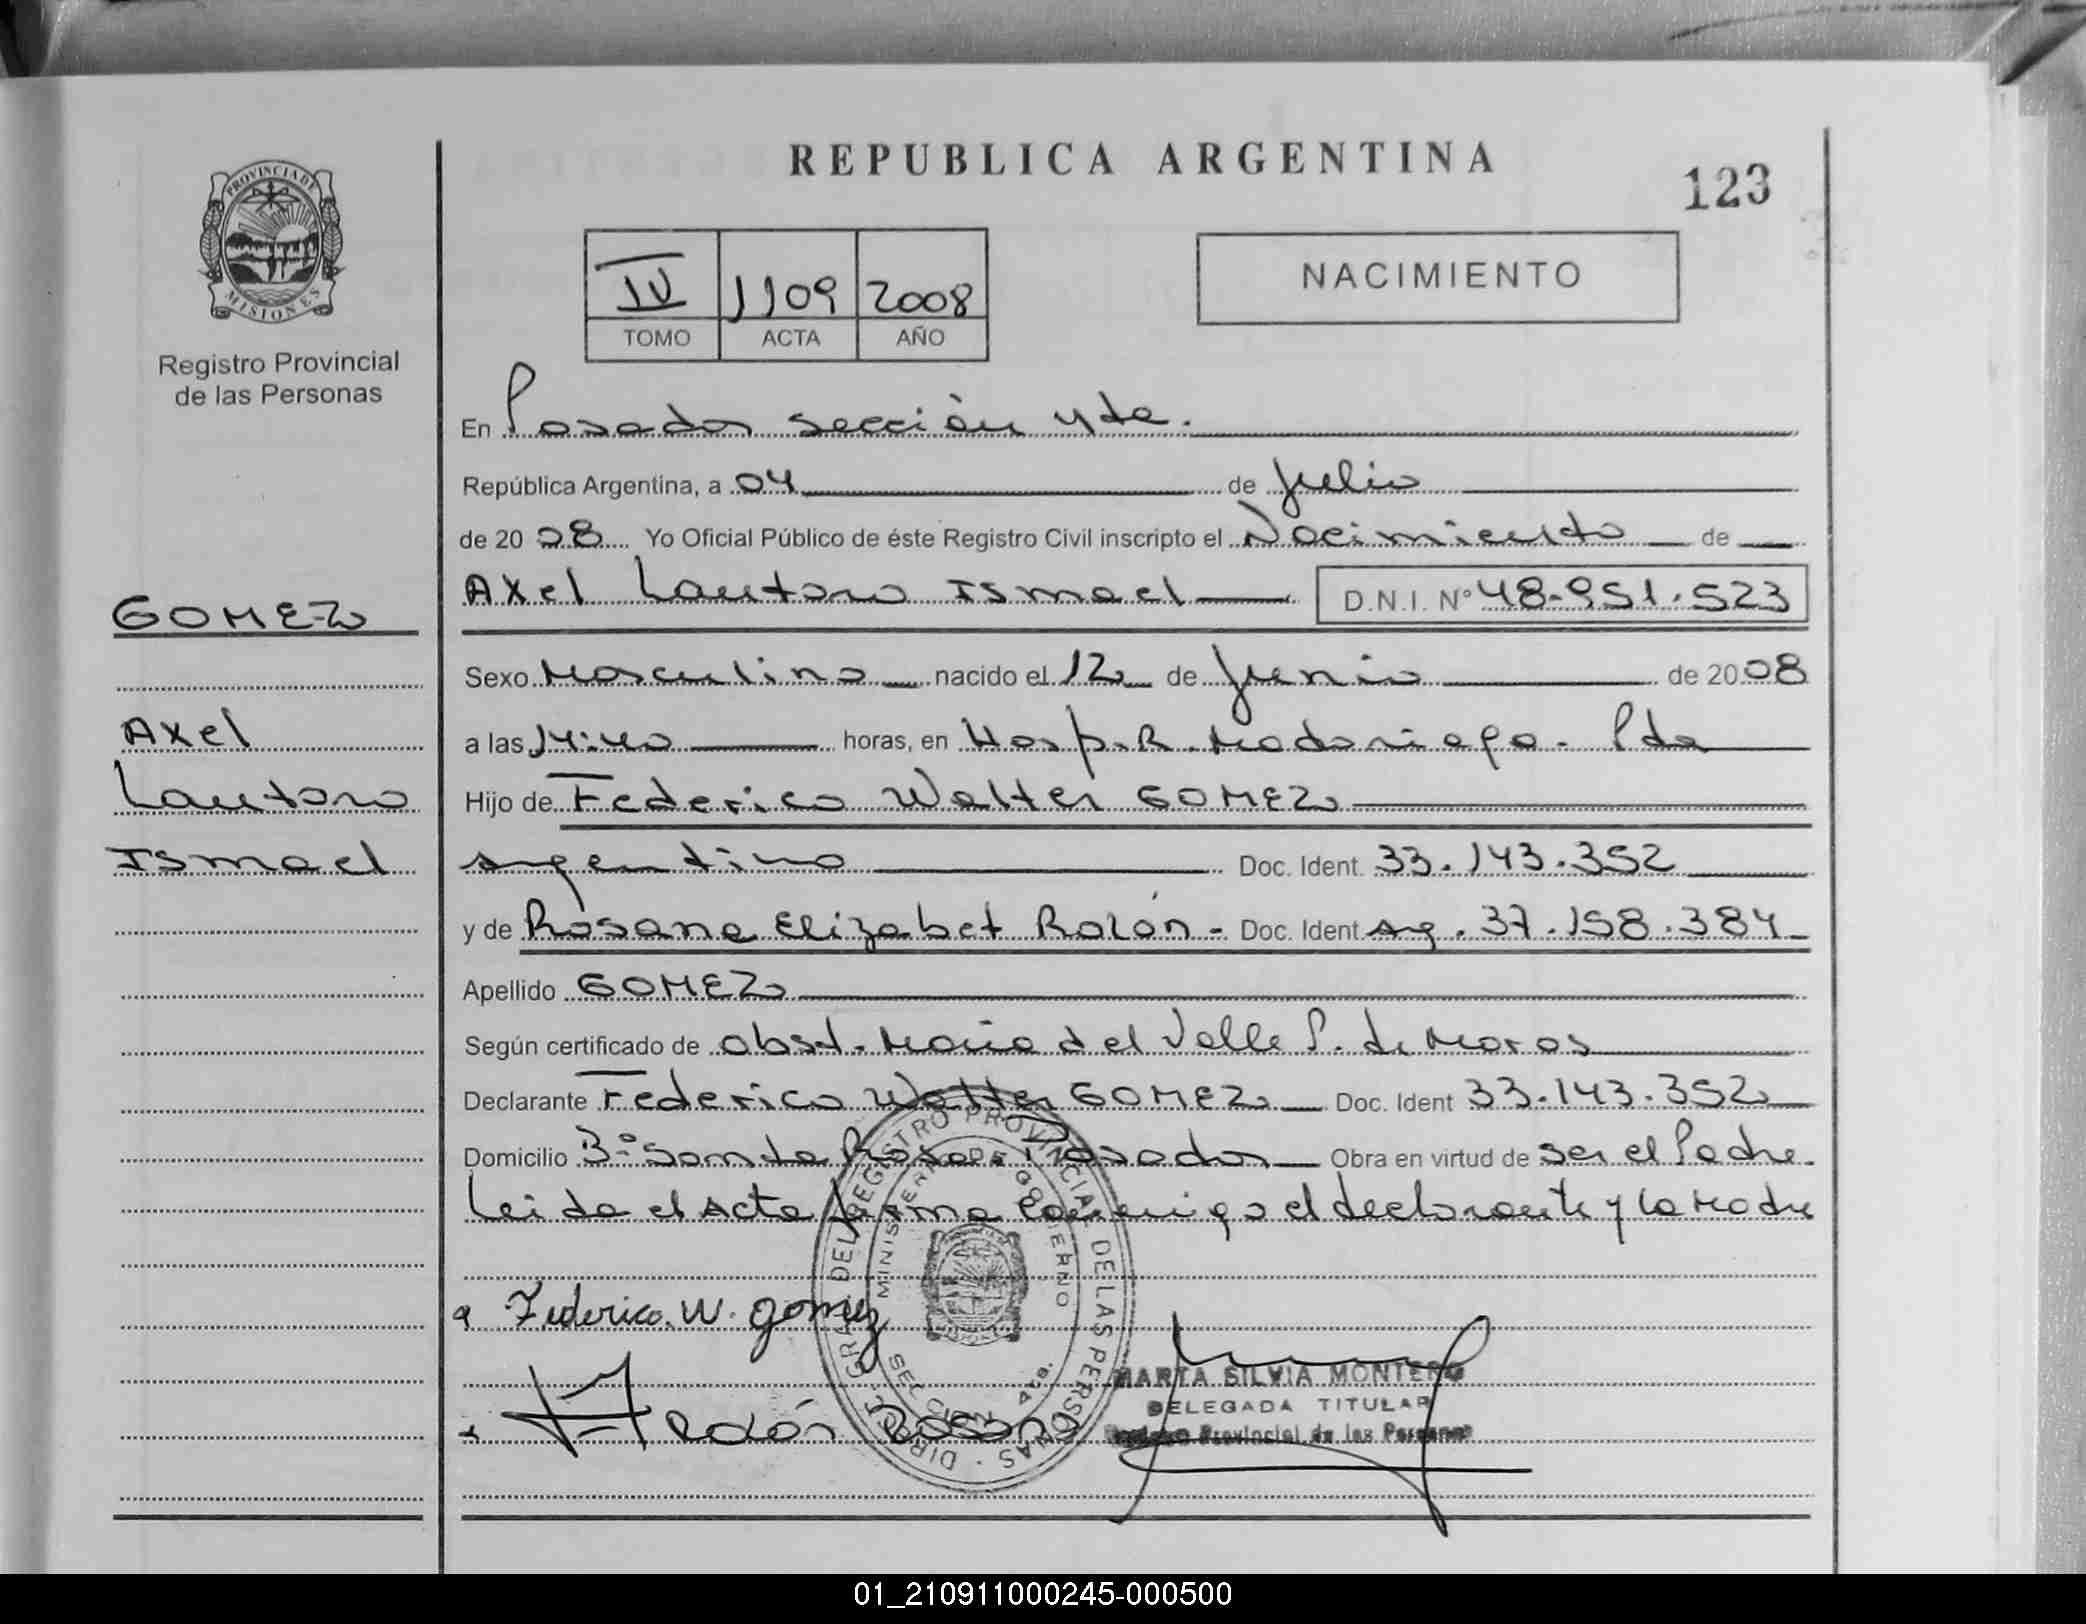 REPUBLICA ARGENTINA
123
PROVINCIA DE
MISIONES
Registro Provincial
de las Personas
IV 1109 2008
TOMO ACTA AÑO
NACIMIENTO
En Posadas sección 4ta.
República Argentina, a 04 de Julio
de 2008 Yo Oficial Público de éste Registro Civil inscripto el Nacimiento de
Axel Lautaro Ismael D.N.I. Nº 48.951.523
GOMEZ
Axel
Lautaro
Ismael
Sexo Masculino nacido el 12 de Junio de 2008
a las 14:40 horas, en Hosp. R. Madariaga. Pdas
Hijo de Federico Walter GOMEZ
argentino Doc. Ident. 33.143.352
y de Rosana Elizabet Rolón - Doc. Ident Arg. 37.158.384
Apellido GOMEZ
Según certificado de Obst. María del Valle P. de Moros
Declarante Federico Walter GOMEZ Doc. Ident 33.143.352
Domicilio Bº Santa Rosa. Posadas Obra en virtud de ser el Padre.
Leida el Acta firma conmigo el declarante y la Madre
Federico. W. gomez
Rolón Rosana
DIREC. GRAL. DEL REGISTRO PROVINCIAL DE LAS PERSONAS
MINISTERIO DE GOBIERNO
SECCION 4ta.
MARTA SILVIA MONTERO
DELEGADA TITULAR
Registro Provincial de las Personas
01_210911000245-000500